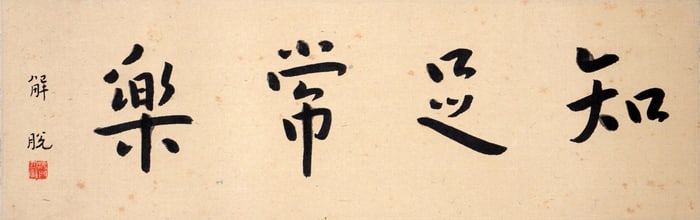 知足常樂
解脱